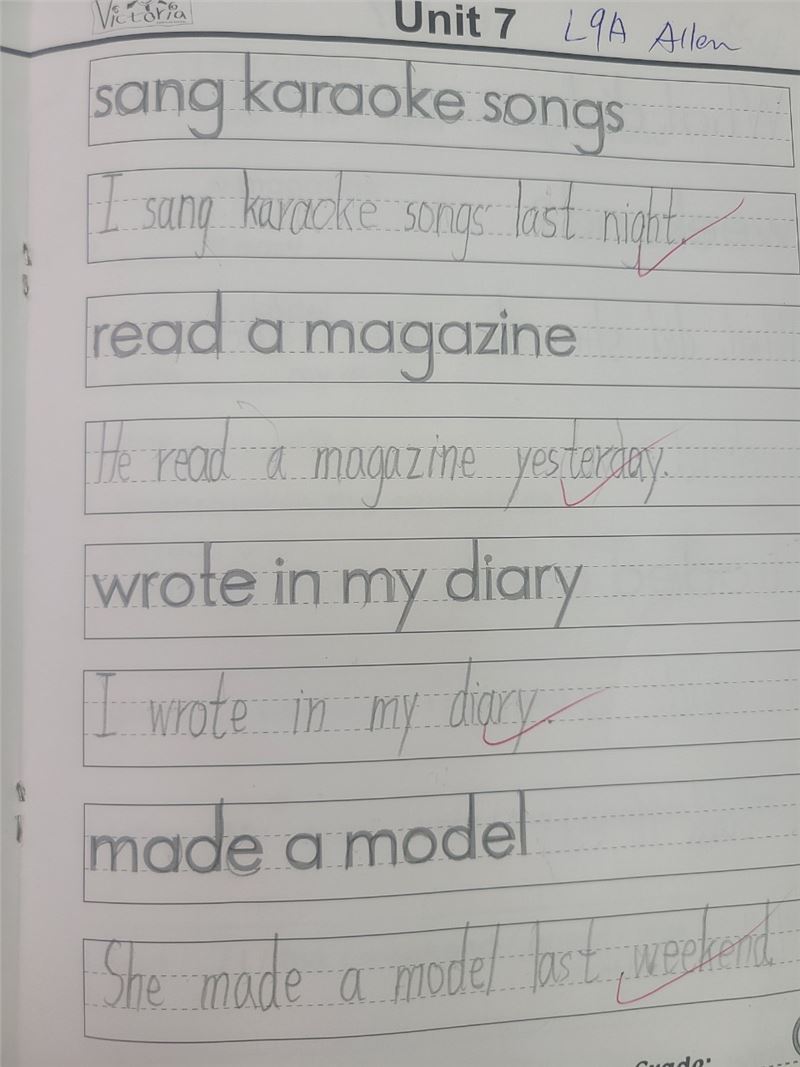 Victoria
Unit 7 L9A Allen
sang karaoke songs
I sang karaoke songs last night.
read a magazine
He read a magazine yesterday.
wrote in my diary
I wrote in my diary.
made a model
She made a model last weekend.